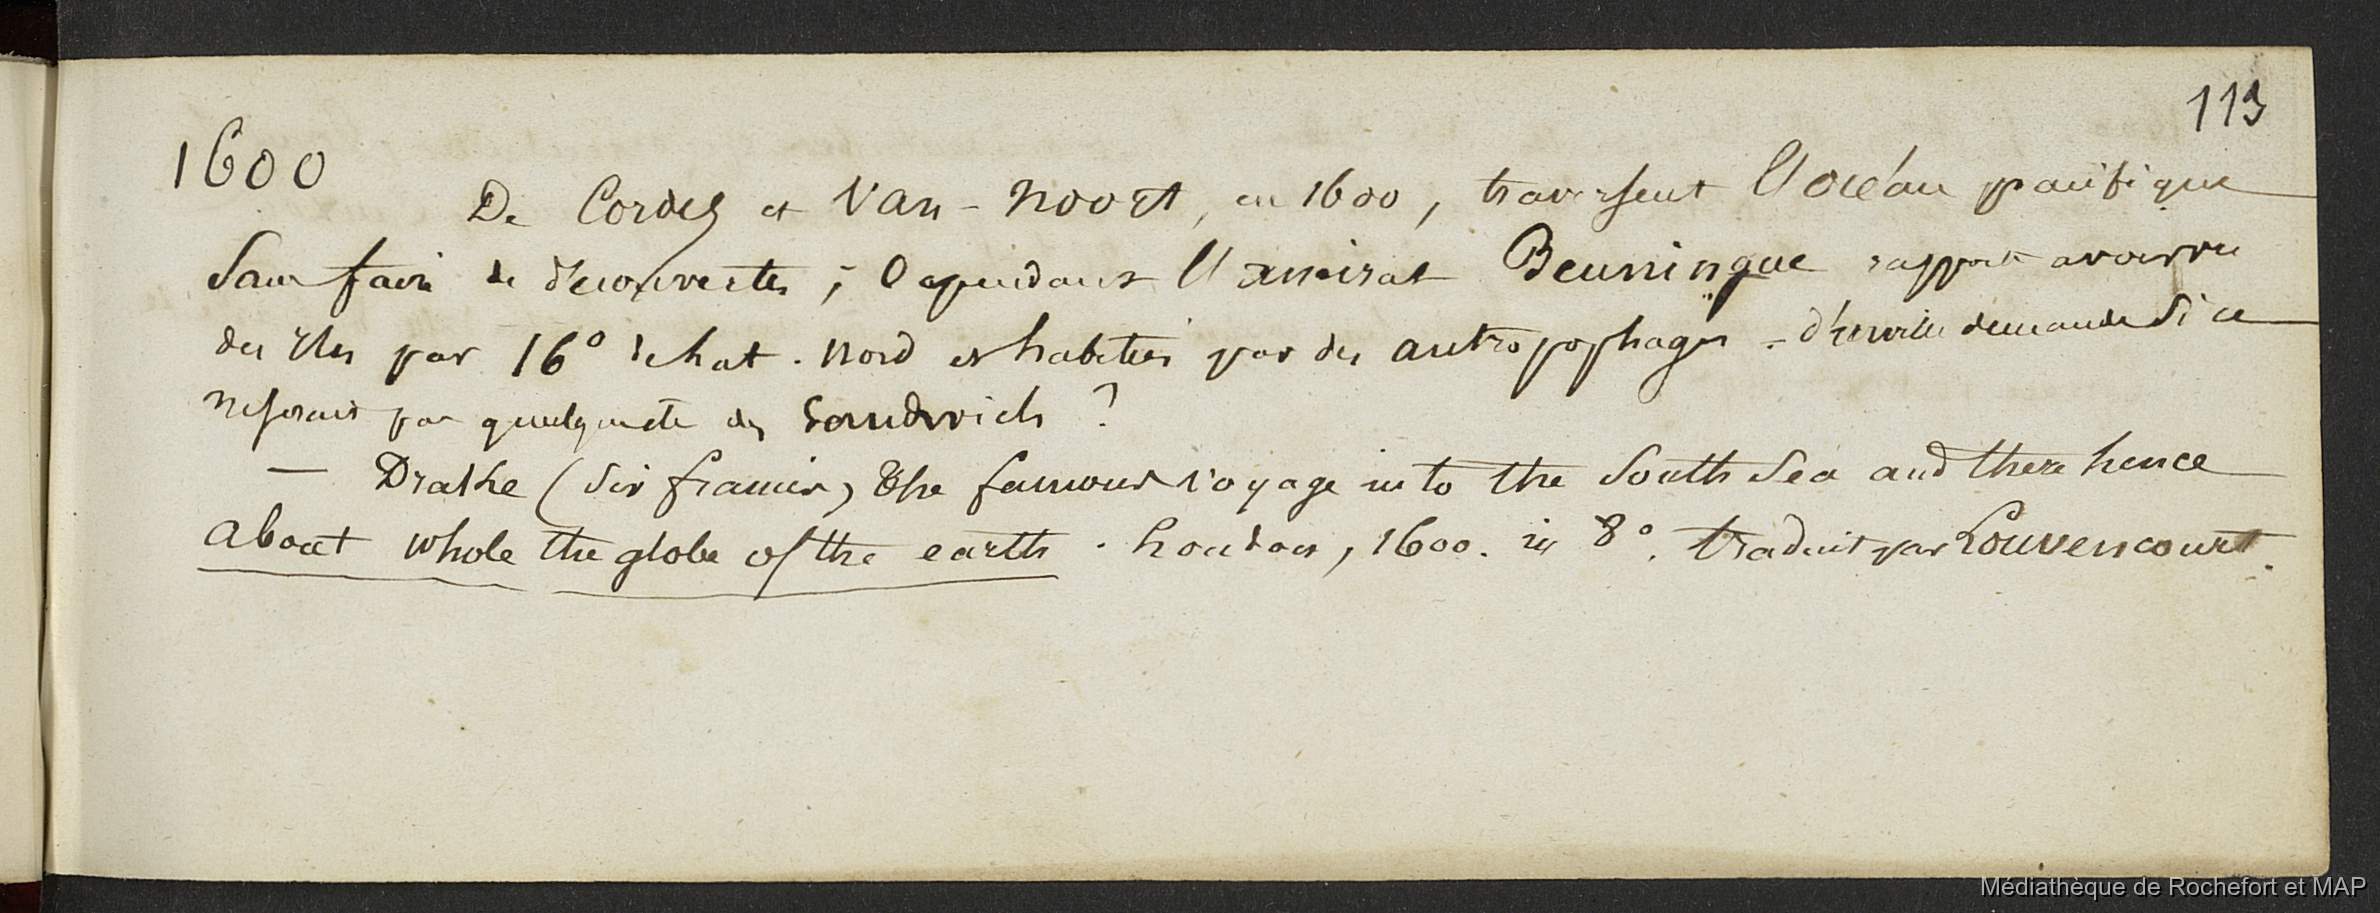 113
1600
De Cordes et Van-Noort, en 1600, traversent l'océan pacifique
sans faire de découvertes ; Cependant l'amiral Beuningue rapporte avoir vu
des îles par 16° de lat. nord et habitées par des antropophages - d'urville demande si ce
ne serait pas quelqu'une des Sandwich ?
— Drake (Sir francis) The famous voyage into the South Sea and there hence
about whole the globe of the earth. London, 1600. in 8°. traduit par Louvencourt.
Médiathèque de Rochefort et MAP